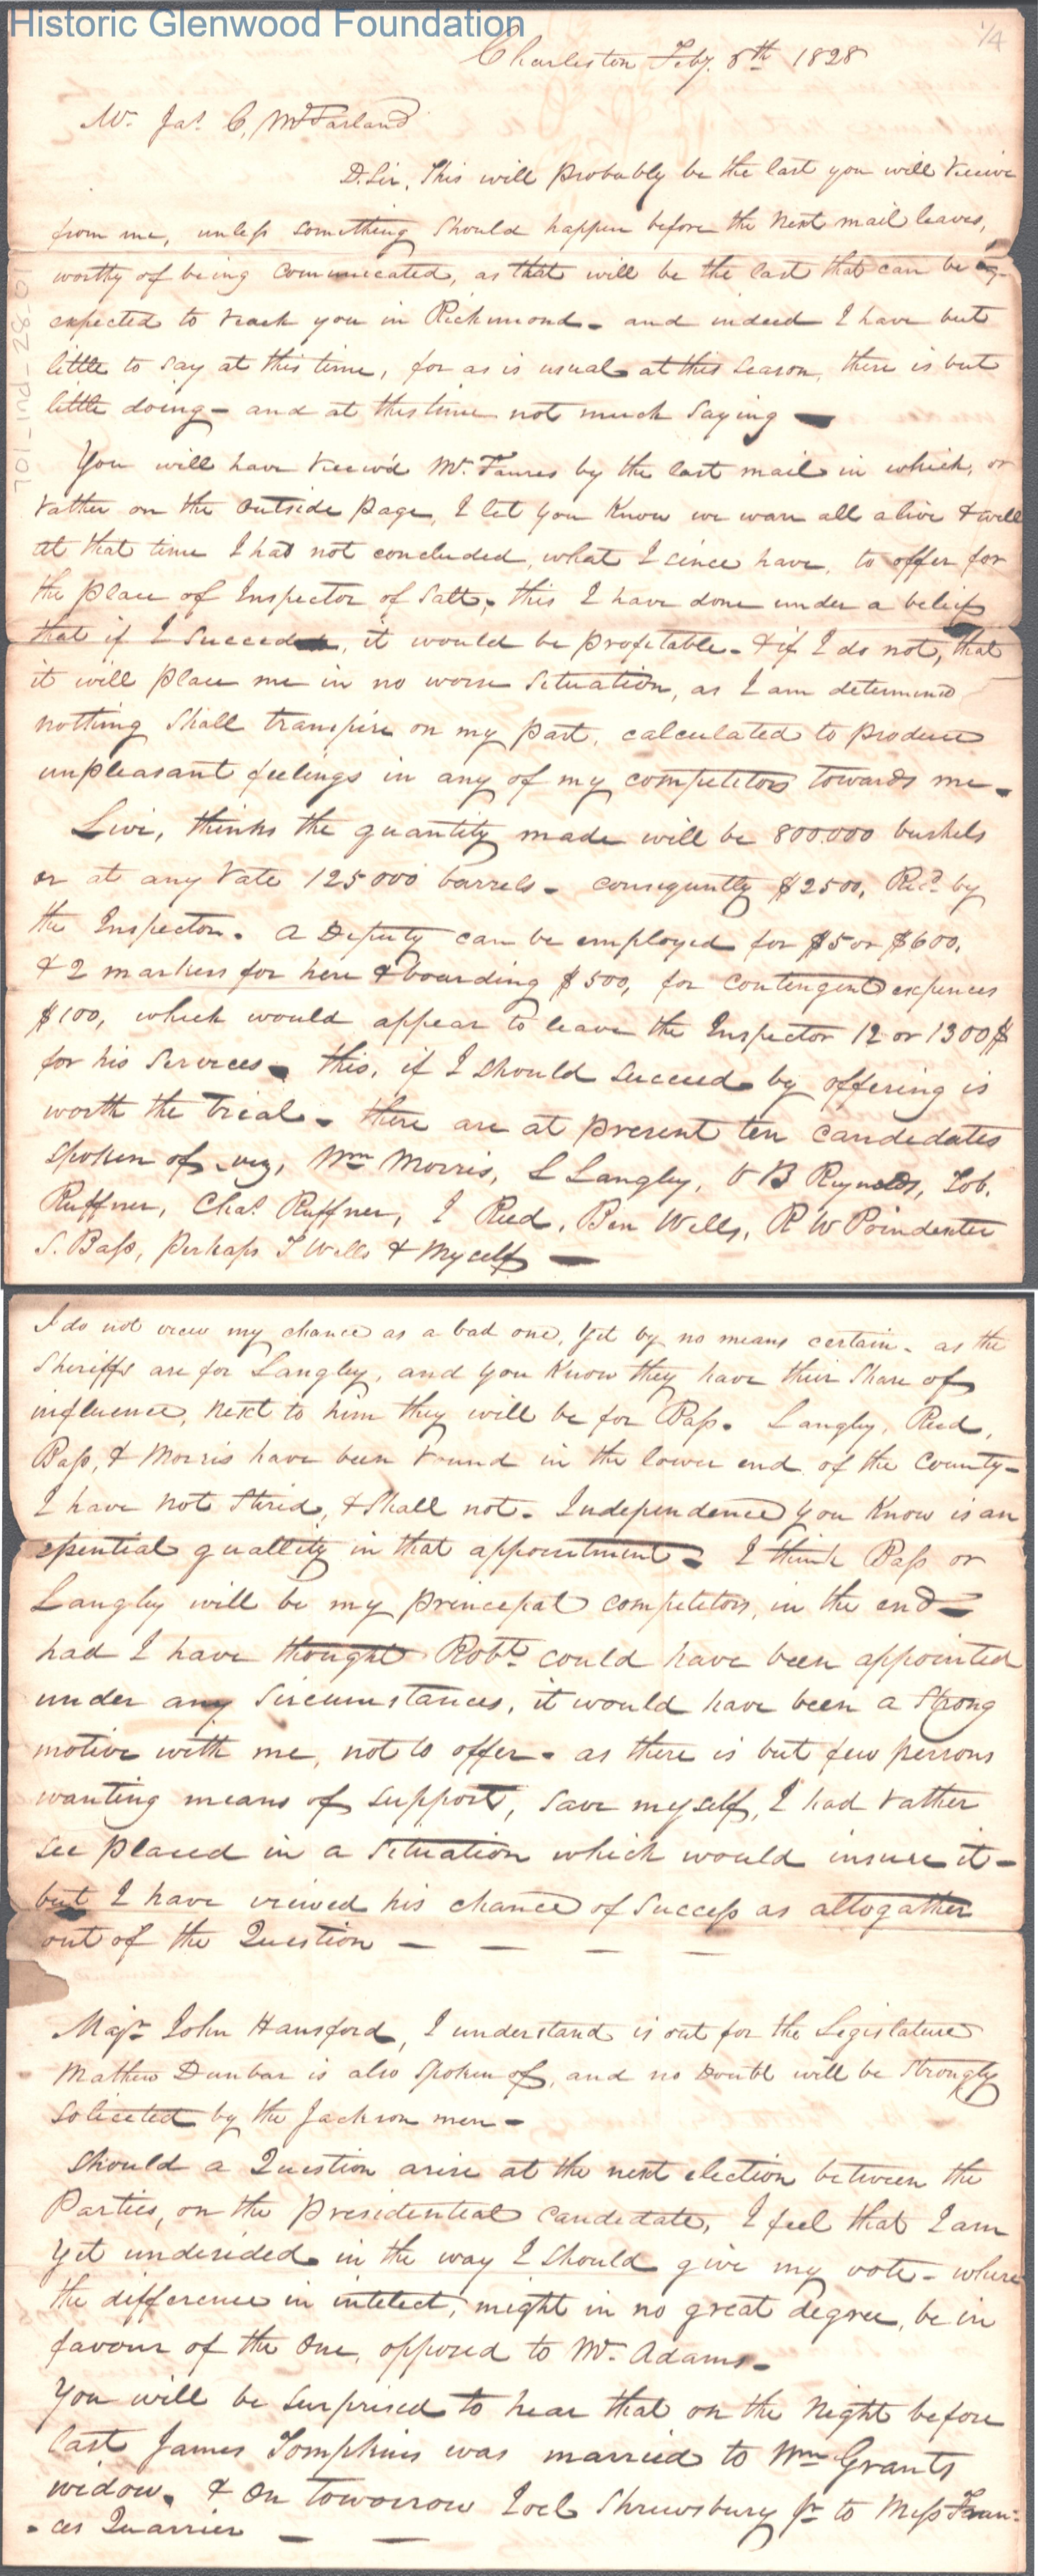 Historic Glenwood Foundation
1/4
Charleston Feby. 8th 1828
Mr. Jas. C, McFarland
D. Sir, This will probably be the last you will receive
from me, unless something should happen before the next mail leaves,
worthy of being communecated, as that will be the last that can be
expected to reach you in Richmond - and indeed I have but
little to say at this time, for as is usual at this season, there is but
little doing - and at this time not much saying -
You will have receiv'd Mr. by the last mail in which, or
rather on the outside page, I let you know we warr all alive & well
at that time I had not concluded, what I since have, to offer for
the place of Inspector of Salt, this I have done under a belief
that if I succeed, it would be profitable - & if I do not, that
it will place me in no worse situation, as I am determined
nothing shall transpire on my part, calculated to produce
unpleasant feelings in any of my competitors towards me -
Levi, thinks the quantity made will be 800.000 bushels
or at any rate 125000 barrels - consequntly $2500, Recd. by
the Inspector. A Deputy can be employed for $5 or $600,
& 2 markers for here & boarding $500, for contengent expences
$100, which would appear to leave the Inspector 12 or 1300$
for his services - this, if I should succeed by offering is
worth the trial - there are at present ten candedates
spoken of, viz, Wm Morris, L Langley, V B Reynolds, Tob.
Ruffner, Chas. Ruffner, J Reed, Ben Wells, R W Poindexter
S. Bass, perhaps T Wells & Myself -
701-Ind-28-01
I do not view my chance as a bad one, yet by no means certain - as the
Sheriffs are for Langley, and you know they have their share of
influence, next to him they will be for Bass. Langley, Reed,
Bass, & Morris have been round in the lower end of the County -
I have not stired, & shall not - Independence you know is an
essential quallity in that appointment - I think Bass or
Langley will be my princepal competitors, in the end -
had I have thought Robt. could have been appointed
under any sircumstances, it would have been a strong
motive with me, not to offer - as there is but few persons
wanting means of support, save myself, I had rather
see placed in a situation which would insure it -
but I have viewed his chance of success as altogather
out of the Question - - - -
Majr. John Hansford, I understand is out for the Legislature
Mathew Dunbar is also spoken of, and no doubt will be strongly
soliceted by the Jackson men -
Should a Question arise at the next election between the
Parties, on the presidential candedate, I feel that I am
yet undesided in the way I should give my vote - where
the difference in intelect, might in no great degree, be in
favour of the one, opposed to Mr. Adams -
You will be surprised to hear that on the night before
last James Tompkins was married to Wm Grants
widow, & on towmorrow Joel Shrewsbury Jr to Miss Fran=
=ces Quarrier - -